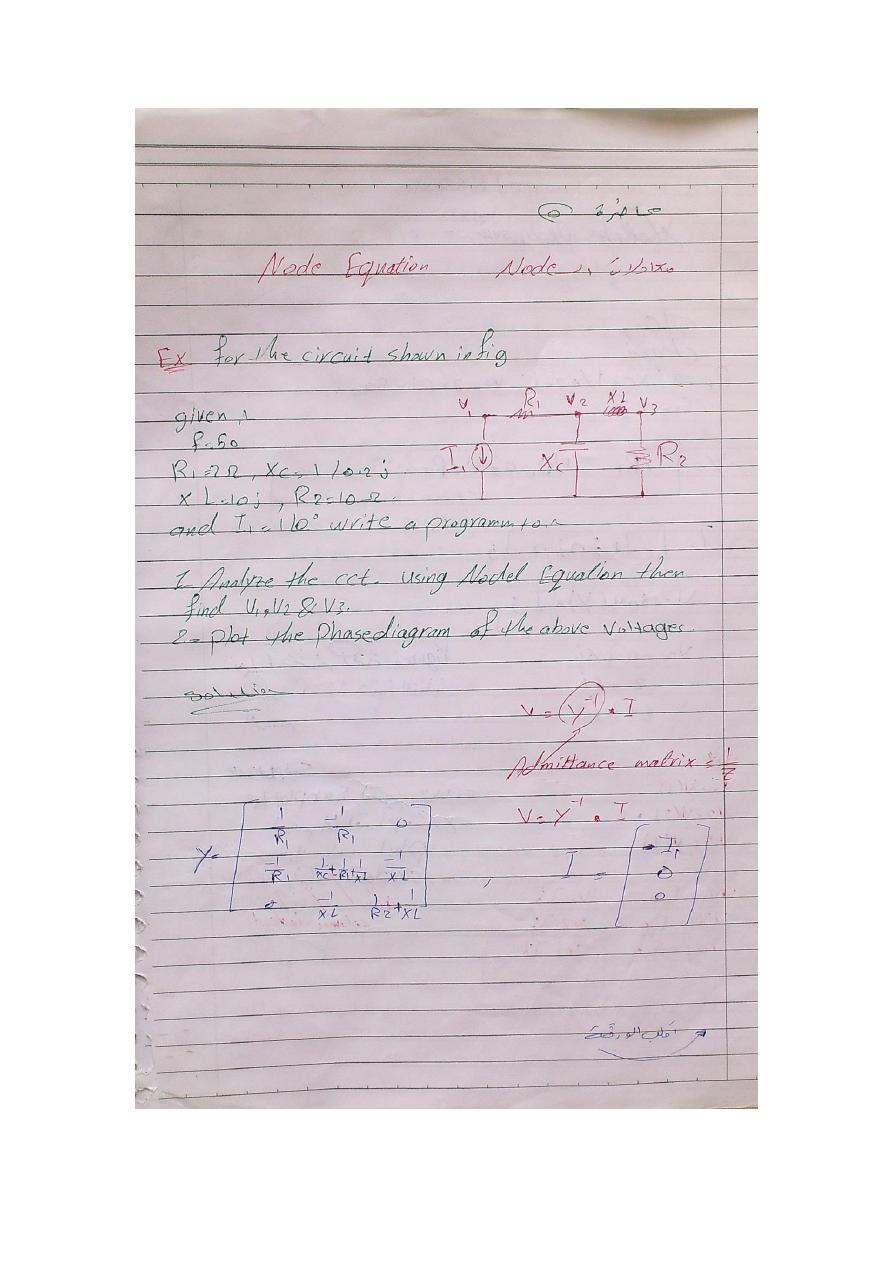 محاضرة ٥
Node Equation معادلات Node
Ex for the circuit shown in fig
given,
f=50
R1=2Ω, Xc=1/0.2j
XL=10j, R2=10Ω.
and I1=1∟0° write a programm to
V1 R1 V2 XL V3
I1 Xc R2
1- Analyze the cct. using Nodel Equation then
find V1, V2 & V3.
2- plot the Phase diagram of the above voltages.
Solution
V = Y^-1 * I
Admittance matrix = 1/Z
V = Y^-1 * I
Y= [ 1/R1 -1/R1 0
-1/R1 1/Xc+1/R1+1/XL -1/XL
0 -1/XL 1/R2+1/XL ] , I = [ -I1
0
0 ]
اقلب الورقة